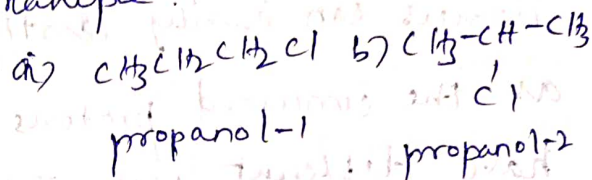 a) CH3CH2CH2Cl b) CH3-CH-CH3
Cl
propanol-1 propanol-2